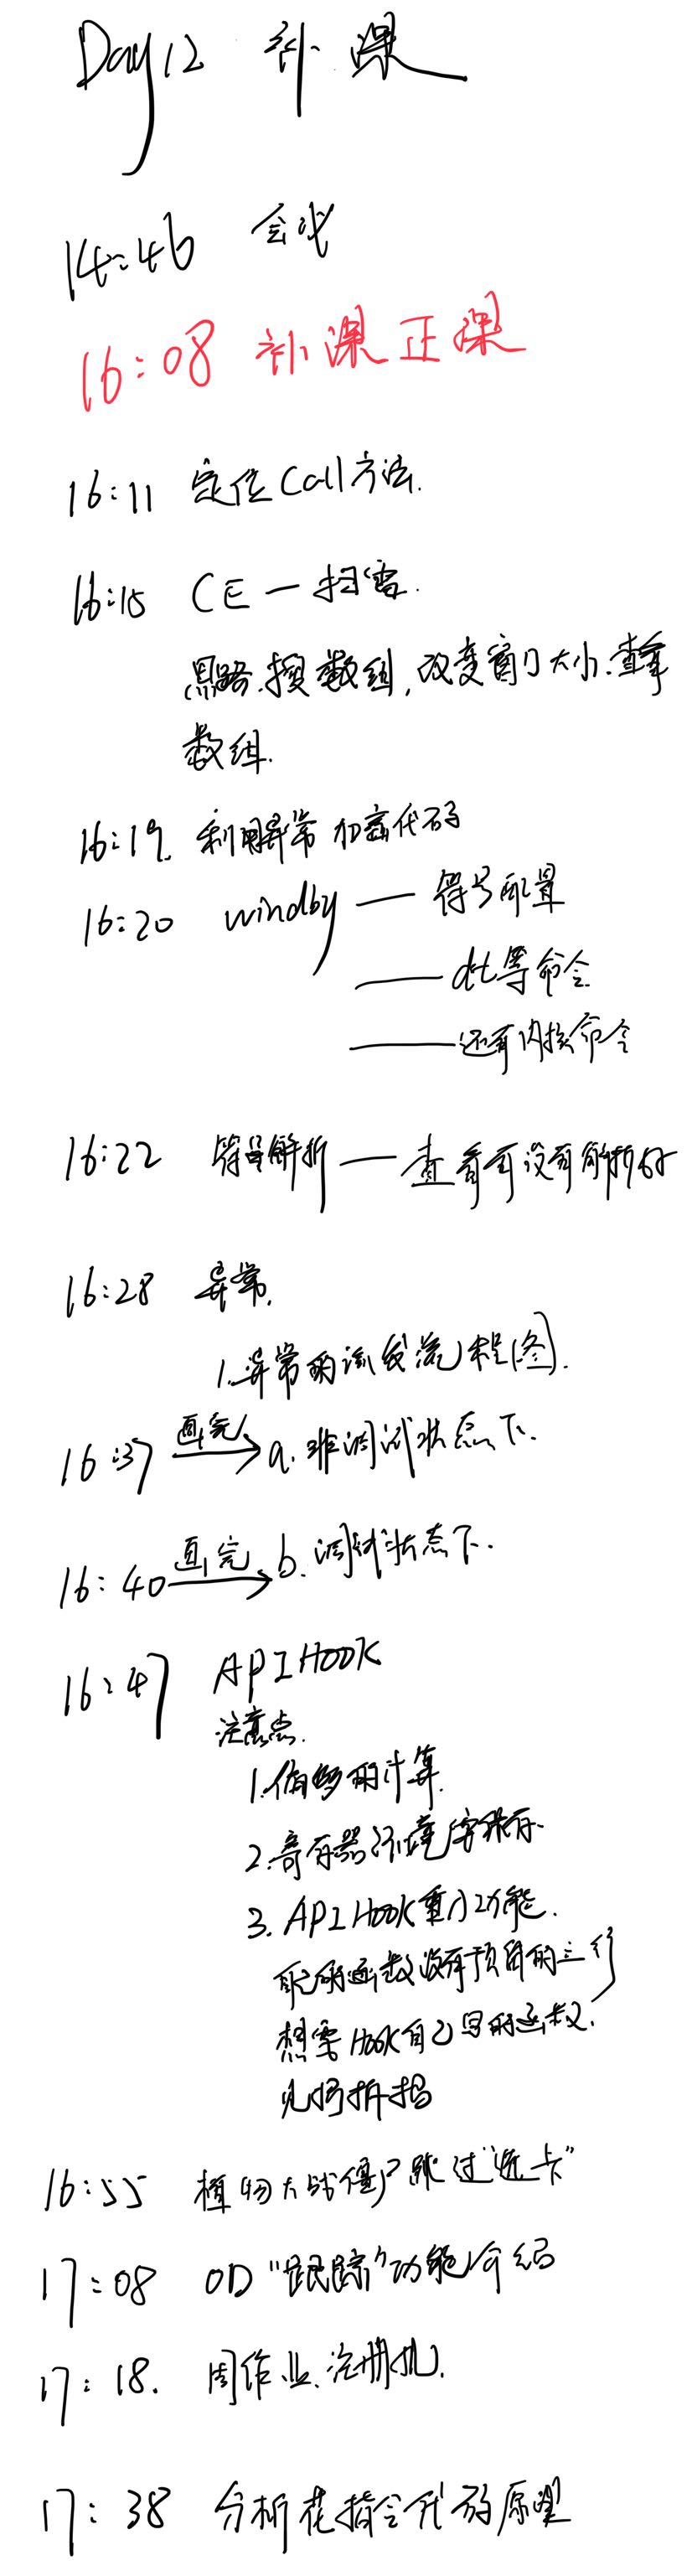 Day12 补课
14:46 会议
16:08 补课正课
16:11 定位Call方法.
16:15 CE — 扫雷.
思路.搜数组,改变窗口大小.查拿
数组.
16:19. 利用异常加密代码
16:20 windby — 符号配置
— dt等命令
— 还有内核命令
16:22 符号解析 — 查看有没有解析好
16:28 异常.
1.异常的派发流程(图).
16:37 画完→ a.非调试状态下.
16:40 画完→ b.调试状态下.
16:47 API HOOK
注意点.
1.偏移的计算.
2.寄存器环境保存.
3. API Hook重入功能.
函数没有预留的三行
想要Hook自己写的函数.
16:55 植物大战僵尸跳过"选卡"
17:08 OD "跟踪"功能介绍
17:18. 周作业.注册机.
17:38 分析花指令代码原理